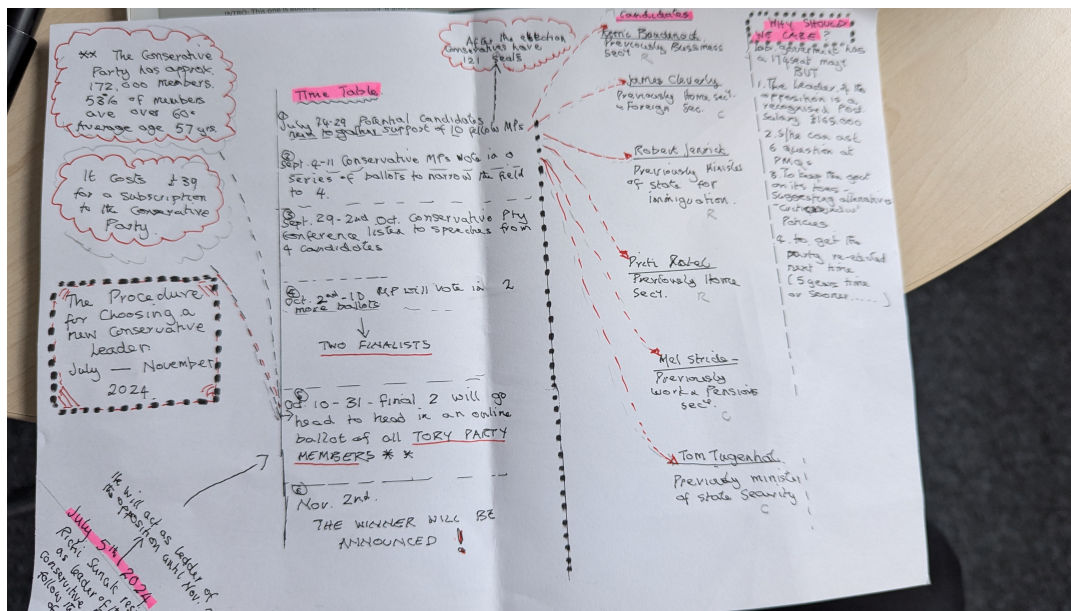 ** The Conserative
Party has approx.
172,000 members.
58% of members
are over 60.
Average age 57 yrs
It costs £39
for a subscription
to the Conservative
Party.
The Procedure
for Choosing a
new Conservative
Leader.
July — November
2024.
He will act as leader of
the opposition until Nov.
July 5th 2024
Rishi Sunak
as leader of the
conservitive
follow
of
After the election
Conservatives have
121 seats
Time Table
① July 24-29 Potential Candidates
need to gather support of 10 fellow MPs
② Sept. 4-11 Conservative MPs vote in a
series of ballots to narrow the field
to 4.
③ Sept. 29-2nd Oct. Conservative Pty
Conference listen to speeches from
4 candidates
④ Oct. 2nd-10 MP will vote in 2
more ballots
TWO FINALISTS
⑤ Oct. 10-31 - final 2 will go
head to head in an online
ballot of all TORY PARTY
MEMBERS * *
⑥ Nov. 2nd.
THE WINNER WILL BE
ANNOUNCED !
Candidates
Previously Bussiness
Sect.
R
James Cleverly
Previously Home Sect.
& Foreign Sec.
C
Robert Jenrick
Previously Minister
of state for
immiguation.
R
Priti Patel
Previously Home
Sect.
R
Mel Stride -
Previously
Work & Pensions
Sect.
C
Tom Tugenhat
Previously minister
of state security
C
WHY SHOULD
WE CARE?
has
a 174 seat majt
BUT
1. The Leader of the
opposition is a
recognised Post.
Salary
2. S/he can ask
6 question at
PMQs
3. To keep the govt
on its toes -
suggesting alternative
Policies
4. to get the
party re-elected
next time
(5 years time
or sooner......)